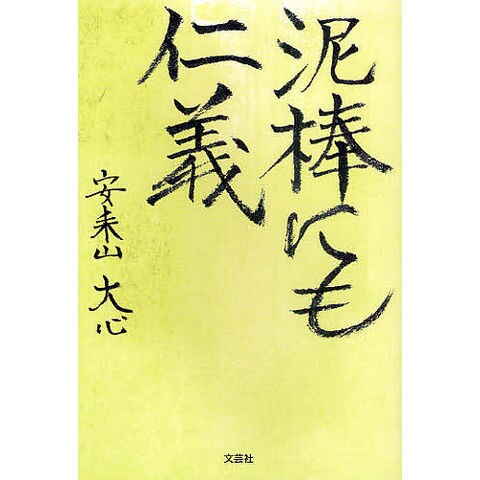 泥棒にも
仁義
安来山 大心
文芸社